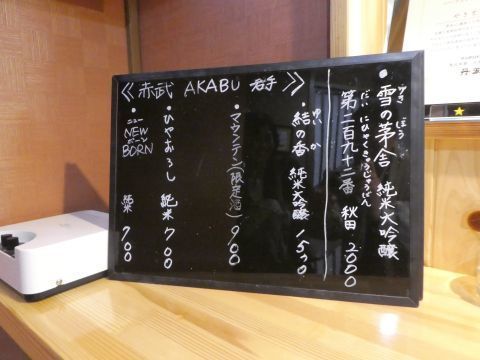 ・雪の茅舎 純米大吟醸
ゆき ぼう
第二百九十二番 秋田 2000
だい にひゃくきゅうじゅうにばん
≪赤武 AKABU 岩手≫
・結の香 純米大吟醸 1500
ゆい か
・マウンテン(限定酒) 900
・ひやおろし 純米 700
・NEW BORN 純米 700
ニュー ボーン